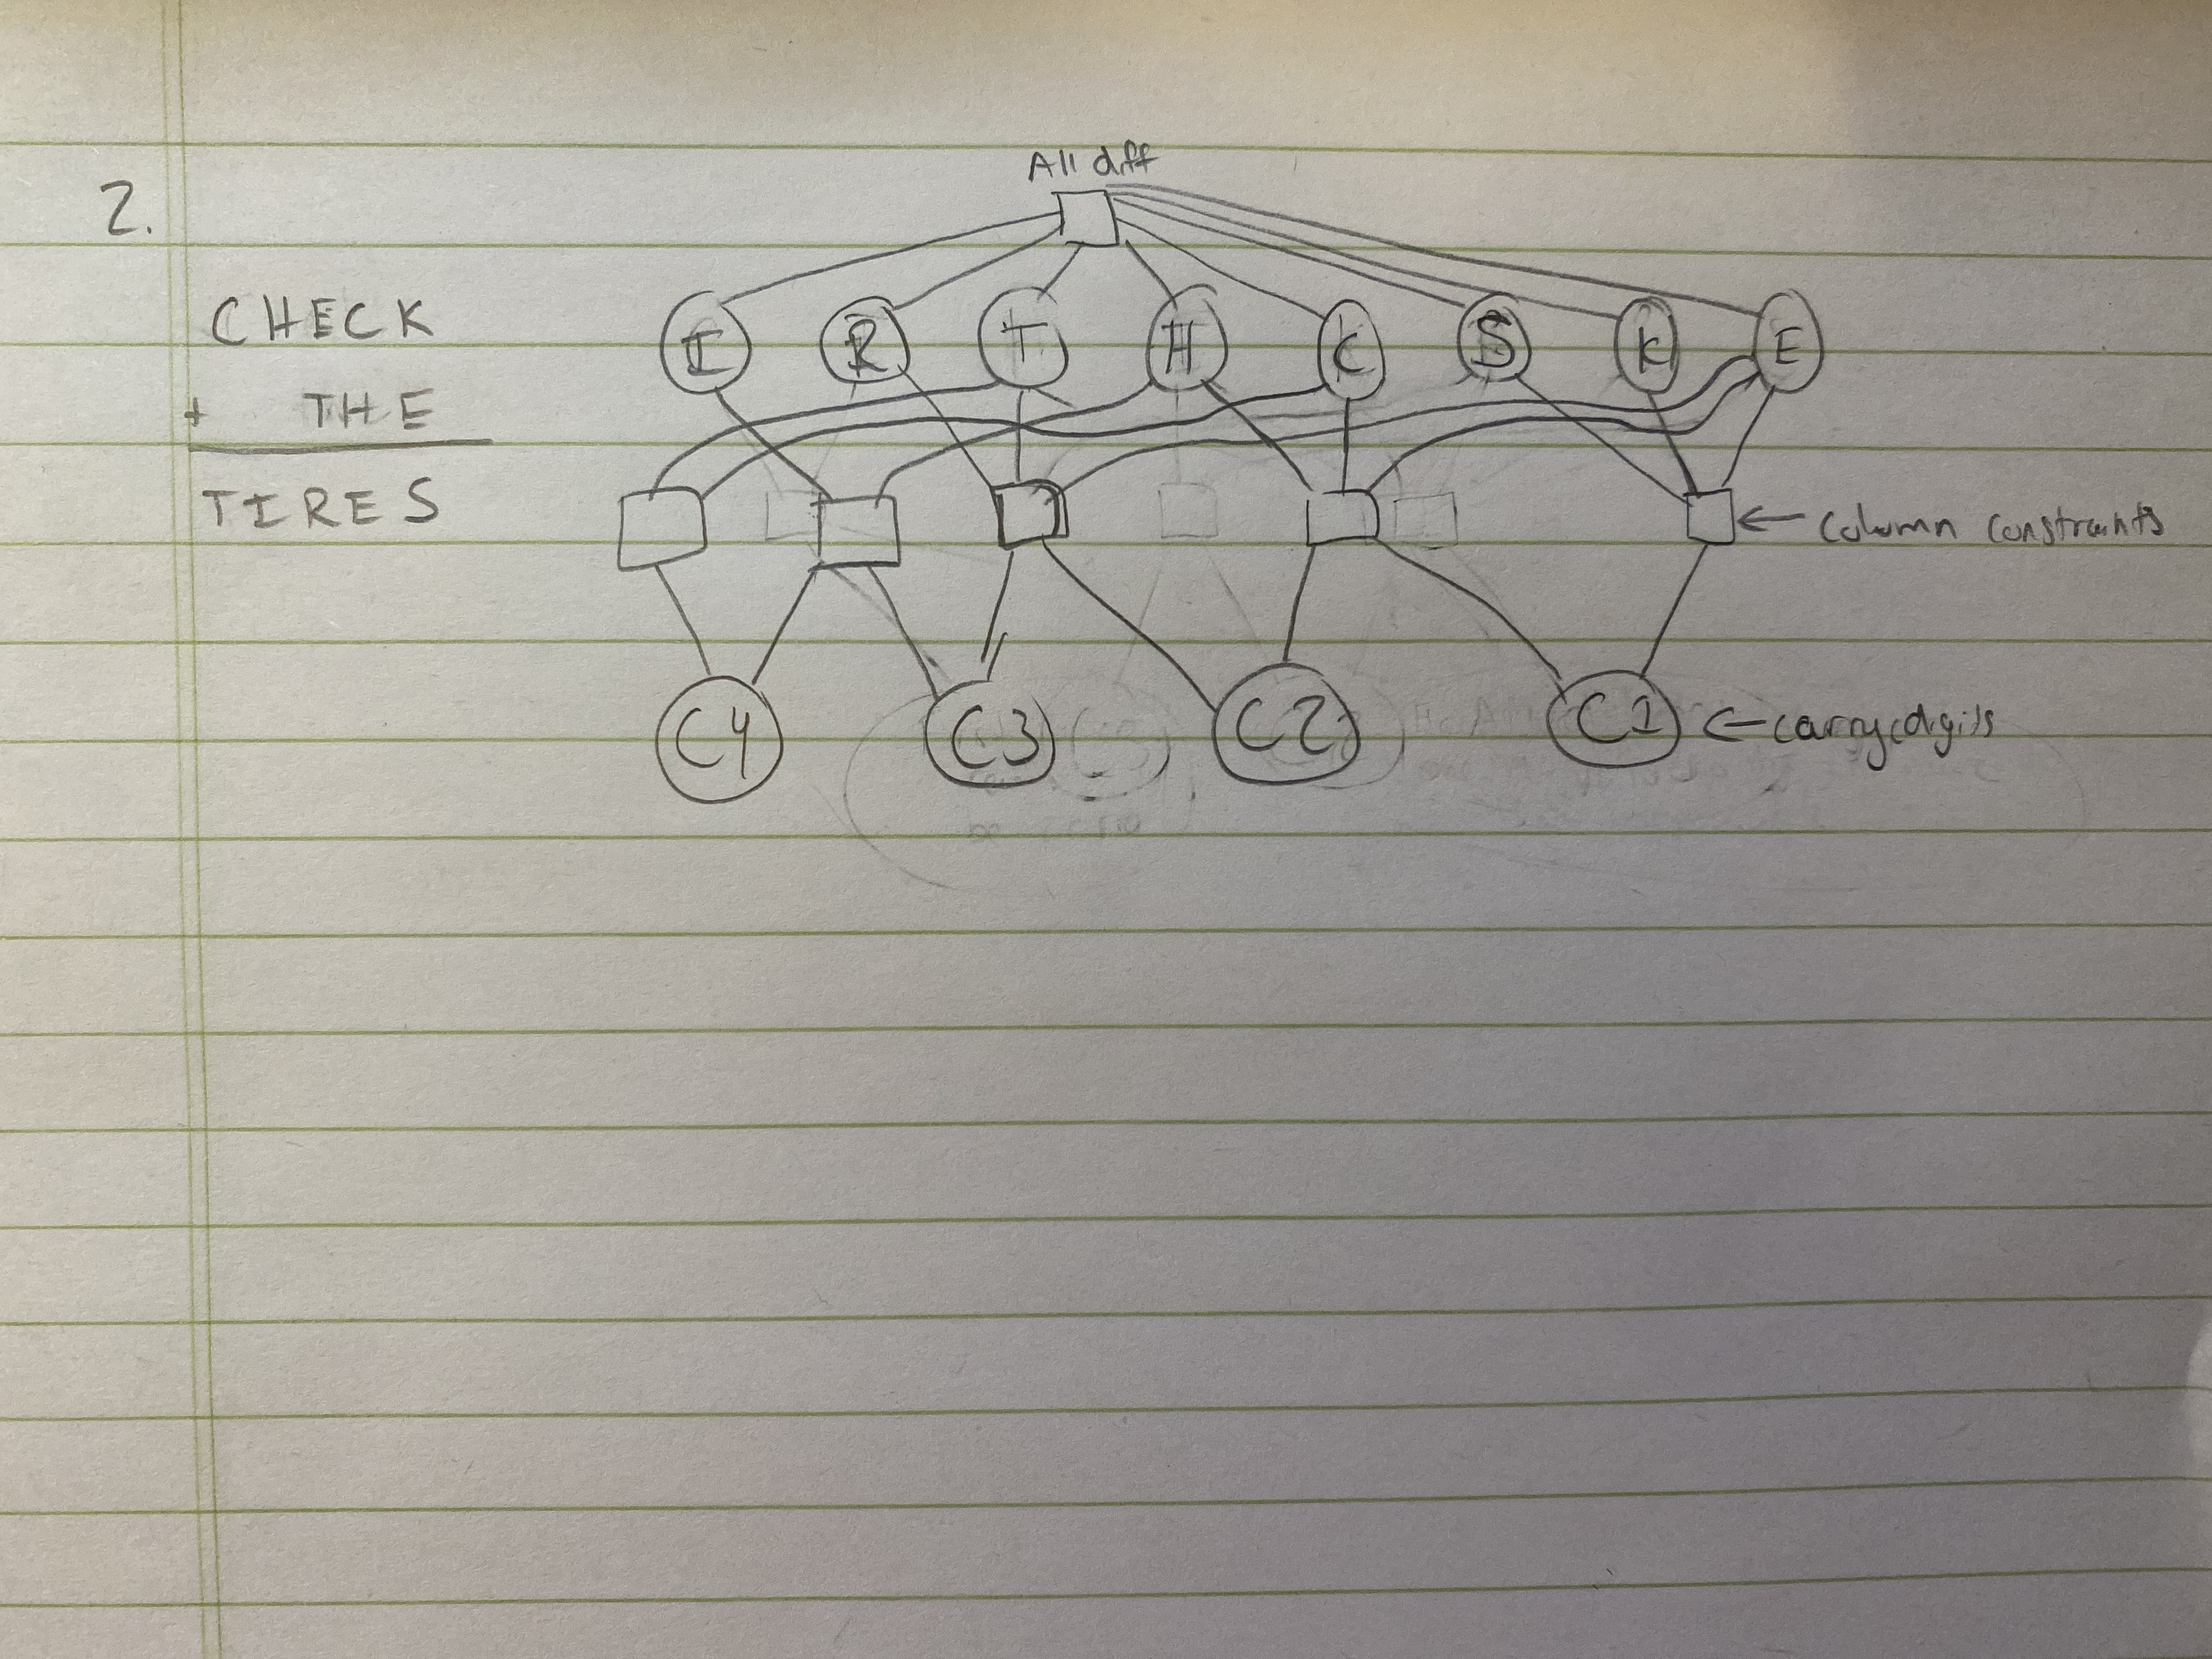 2.
CHECK
+ THE
TIRES
All diff
I R T H C S K E
← Column constraints
C4 C3 C2 C1 ← carry digits